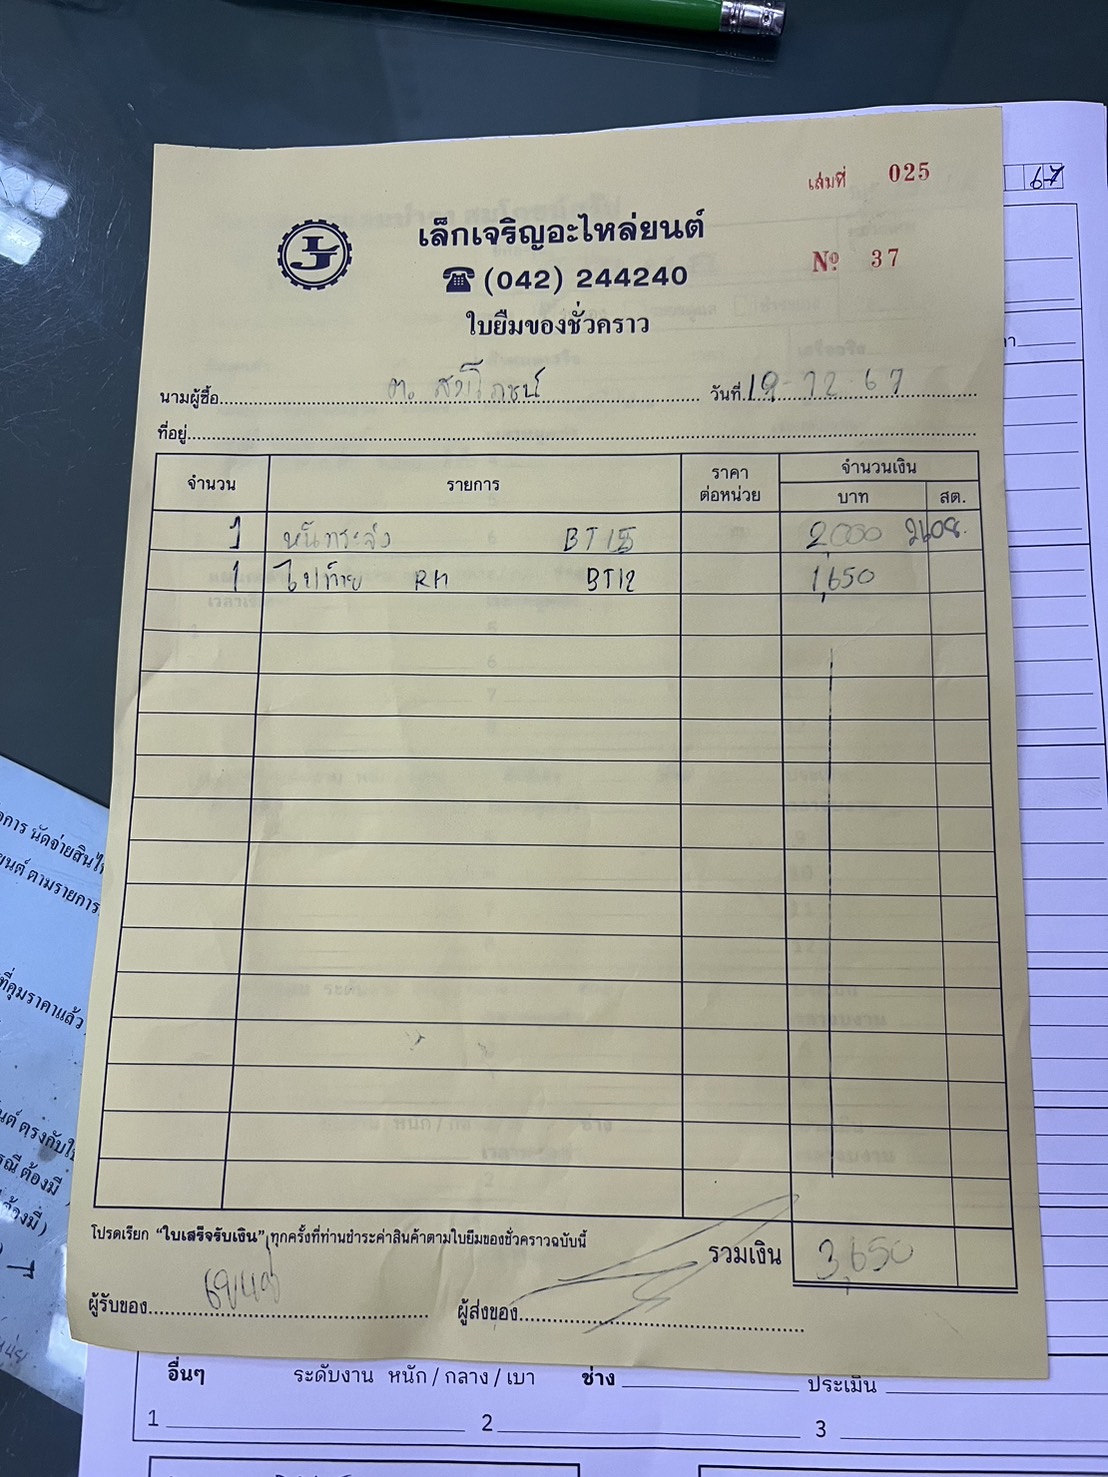 67
เล่มที่ 025
เล็กเจริญอะไหล่ยนต์
(042) 244240
Nº 37
ใบยืมของชั่วคราว
นามผู้ซื้อ วันที่ 19-12-67
ที่อยู่
จำนวน รายการ ราคาต่อหน่วย จำนวนเงิน
บาท สต.
1 หน้ากระจัง BT15 2,000 2608.
1 ไฟท้าย RH BT12 1,650
โปรดเรียก "ใบเสร็จรับเงิน" ทุกครั้งที่ท่านชำระค่าสินค้าตามใบยืมของชั่วคราวฉบับนี้
รวมเงิน 3,650
ผู้รับของ ผู้ส่งของ
อื่นๆ ระดับงาน หนัก / กลาง / เบา ช่าง ประเมิน
1 2 3
การ นัดจ่ายสินไ
ยนต์ ตามรายการ
ที่คุ้มราคาแล้ว